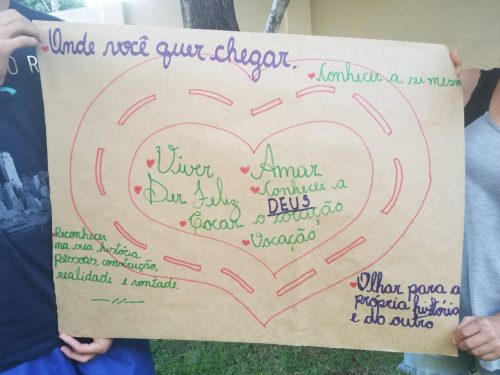 Onde você quer chegar.
Conhecer a si mesmo
Viver
Amar
Ser Feliz
Conhecer a
DEUS
Tocar o coração
Vocação
Reconhecer
na sua história
pessoas, construção,
realidade e vontade.
Olhar para a
própria história
e do outro